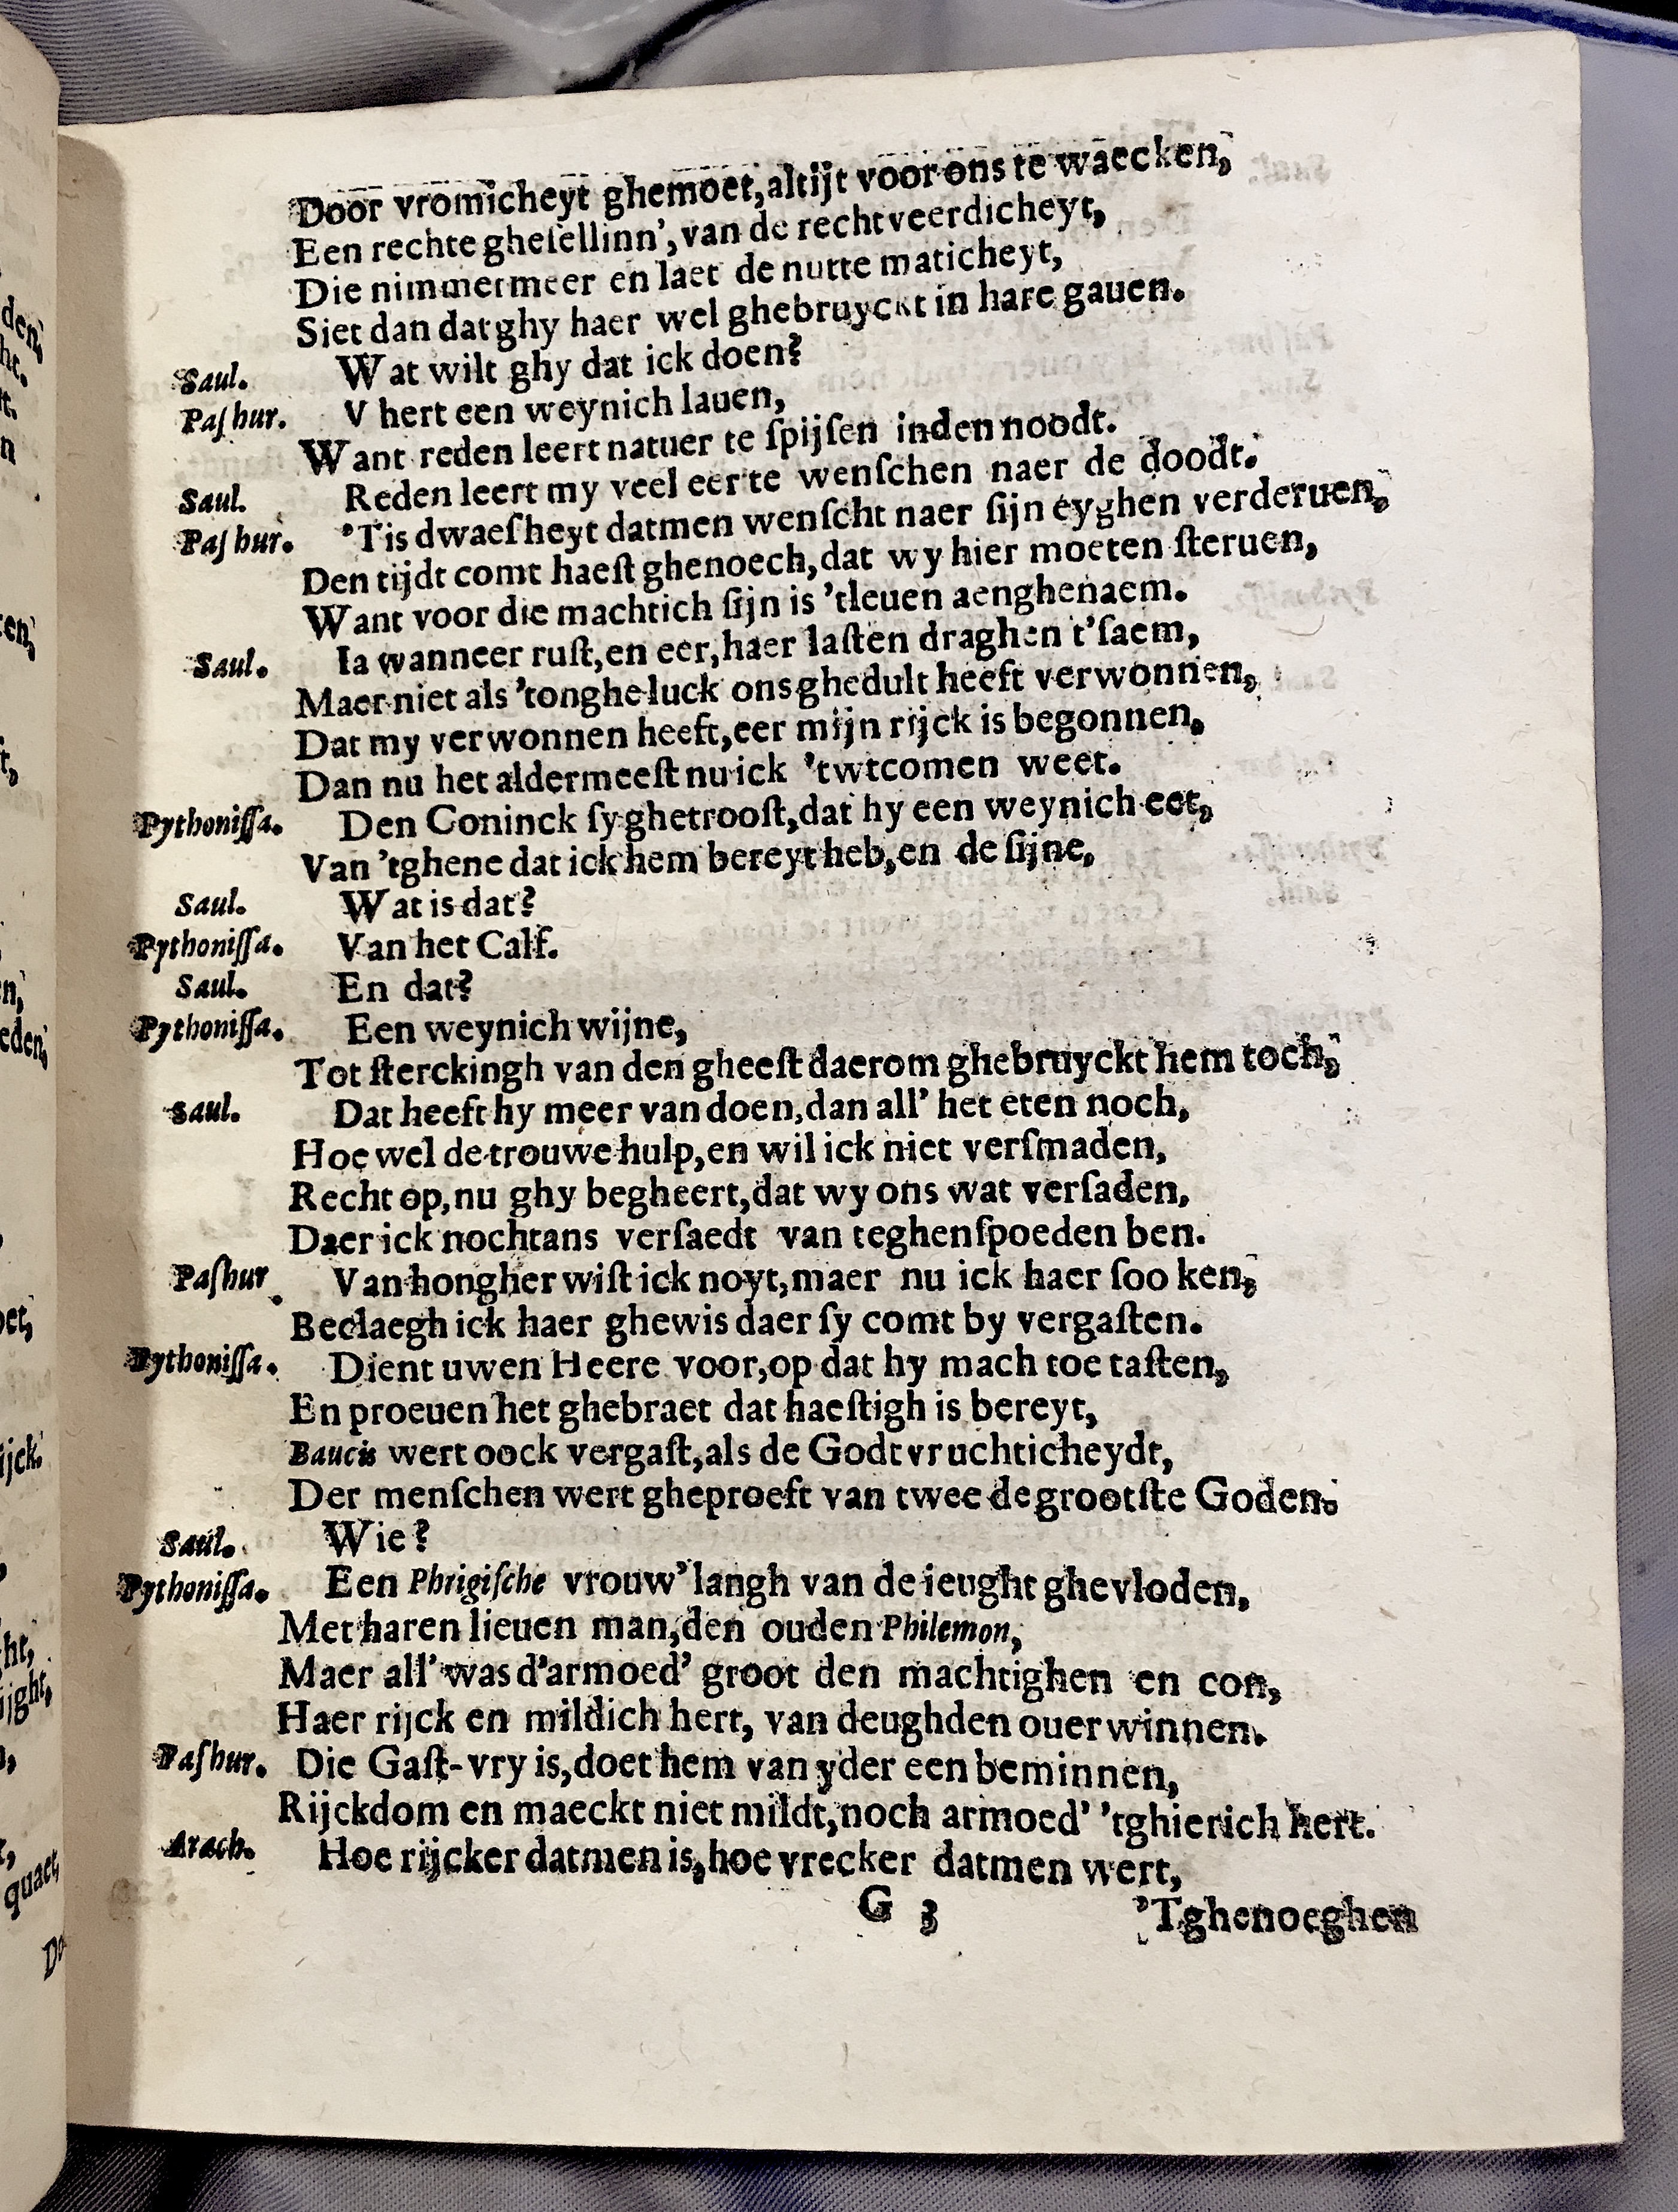 Door vromicheyt ghemoet, altijt voor ons te waecken,
Een rechte gheſellinn’, van de rechtveerdicheyt,
Die nimmermeer en laet de nutte maticheyt,
Siet dan dat ghy haer wel ghebruyckt in hare gauen.
Saul. Wat wilt ghy dat ick doen?
Paſhur. V hert een weynich lauen,
Want reden leert natuer te ſpijſen inden noodt.
Saul. Reden leert my veel eer te wenſchen naer de doodt.
Paſhur. ’Tis dwaeſheyt datmen wenſcht naer ſijn eyghen verderuen,
Den tijdt comt haeſt ghenoech, dat wy hier moeten ſteruen,
Want voor die machtich ſijn is ’tleuen aenghenaem.
Saul. Ia wanneer ruſt, en eer, haer laſten draghen t’ſaem,
Maer niet als ’tongheluck ons ghedult heeft verwonnen,
Dat my verwonnen heeft, eer mijn rijck is begonnen,
Dan nu het aldermeeſt nu ick ’twtcomen weet.
Pythoniſſa. Den Coninck ſy ghetrooſt, dat hy een weynich eet,
Van ’tghene dat ick hem bereyt heb, en de ſijne,
Saul. Wat is dat?
Pythoniſſa. Van het Calf.
Saul. En dat?
Pythoniſſa. Een weynich wijne,
Tot ſterckingh van den gheeſt daerom ghebruyckt hem toch,
Saul. Dat heeft hy meer van doen, dan all’ het eten noch,
Hoe wel de trouwe hulp, en wil ick niet verſmaden,
Recht op, nu ghy begheert, dat wy ons wat verſaden,
Daer ick nochtans verſaedt van teghenſpoeden ben.
Paſhur. Van hongher wiſt ick noyt, maer nu ick haer ſoo ken,
Beclaegh ick haer ghewis daer ſy comt by vergaſten.
Pythoniſſa. Dient uwen Heere voor, op dat hy mach toe taſten,
En proeuen het ghebraet dat haeſtigh is bereyt,
Baucis wert oock vergaſt, als de Godtvruchticheydt,
Der menſchen wert gheproeft van twee de grootſte Goden.
Saul. Wie?
Pythoniſſa. Een Phrigiſche vrouw’ langh van de ieught ghevloden,
Met haren lieuen man, den ouden Philemon,
Maer all’ was d’armoed’ groot den machtighen en con,
Haer rijck en mildich hert, van deughden ouerwinnen.
Paſhur. Die Gaſt-vry is, doet hem van yder een beminnen,
Rijckdom en maeckt niet mildt, noch armoed’ ’tghierich hert.
Arach. Hoe rijcker datmen is, hoe vrecker datmen wert,
G 3 ’Tghenoeghen